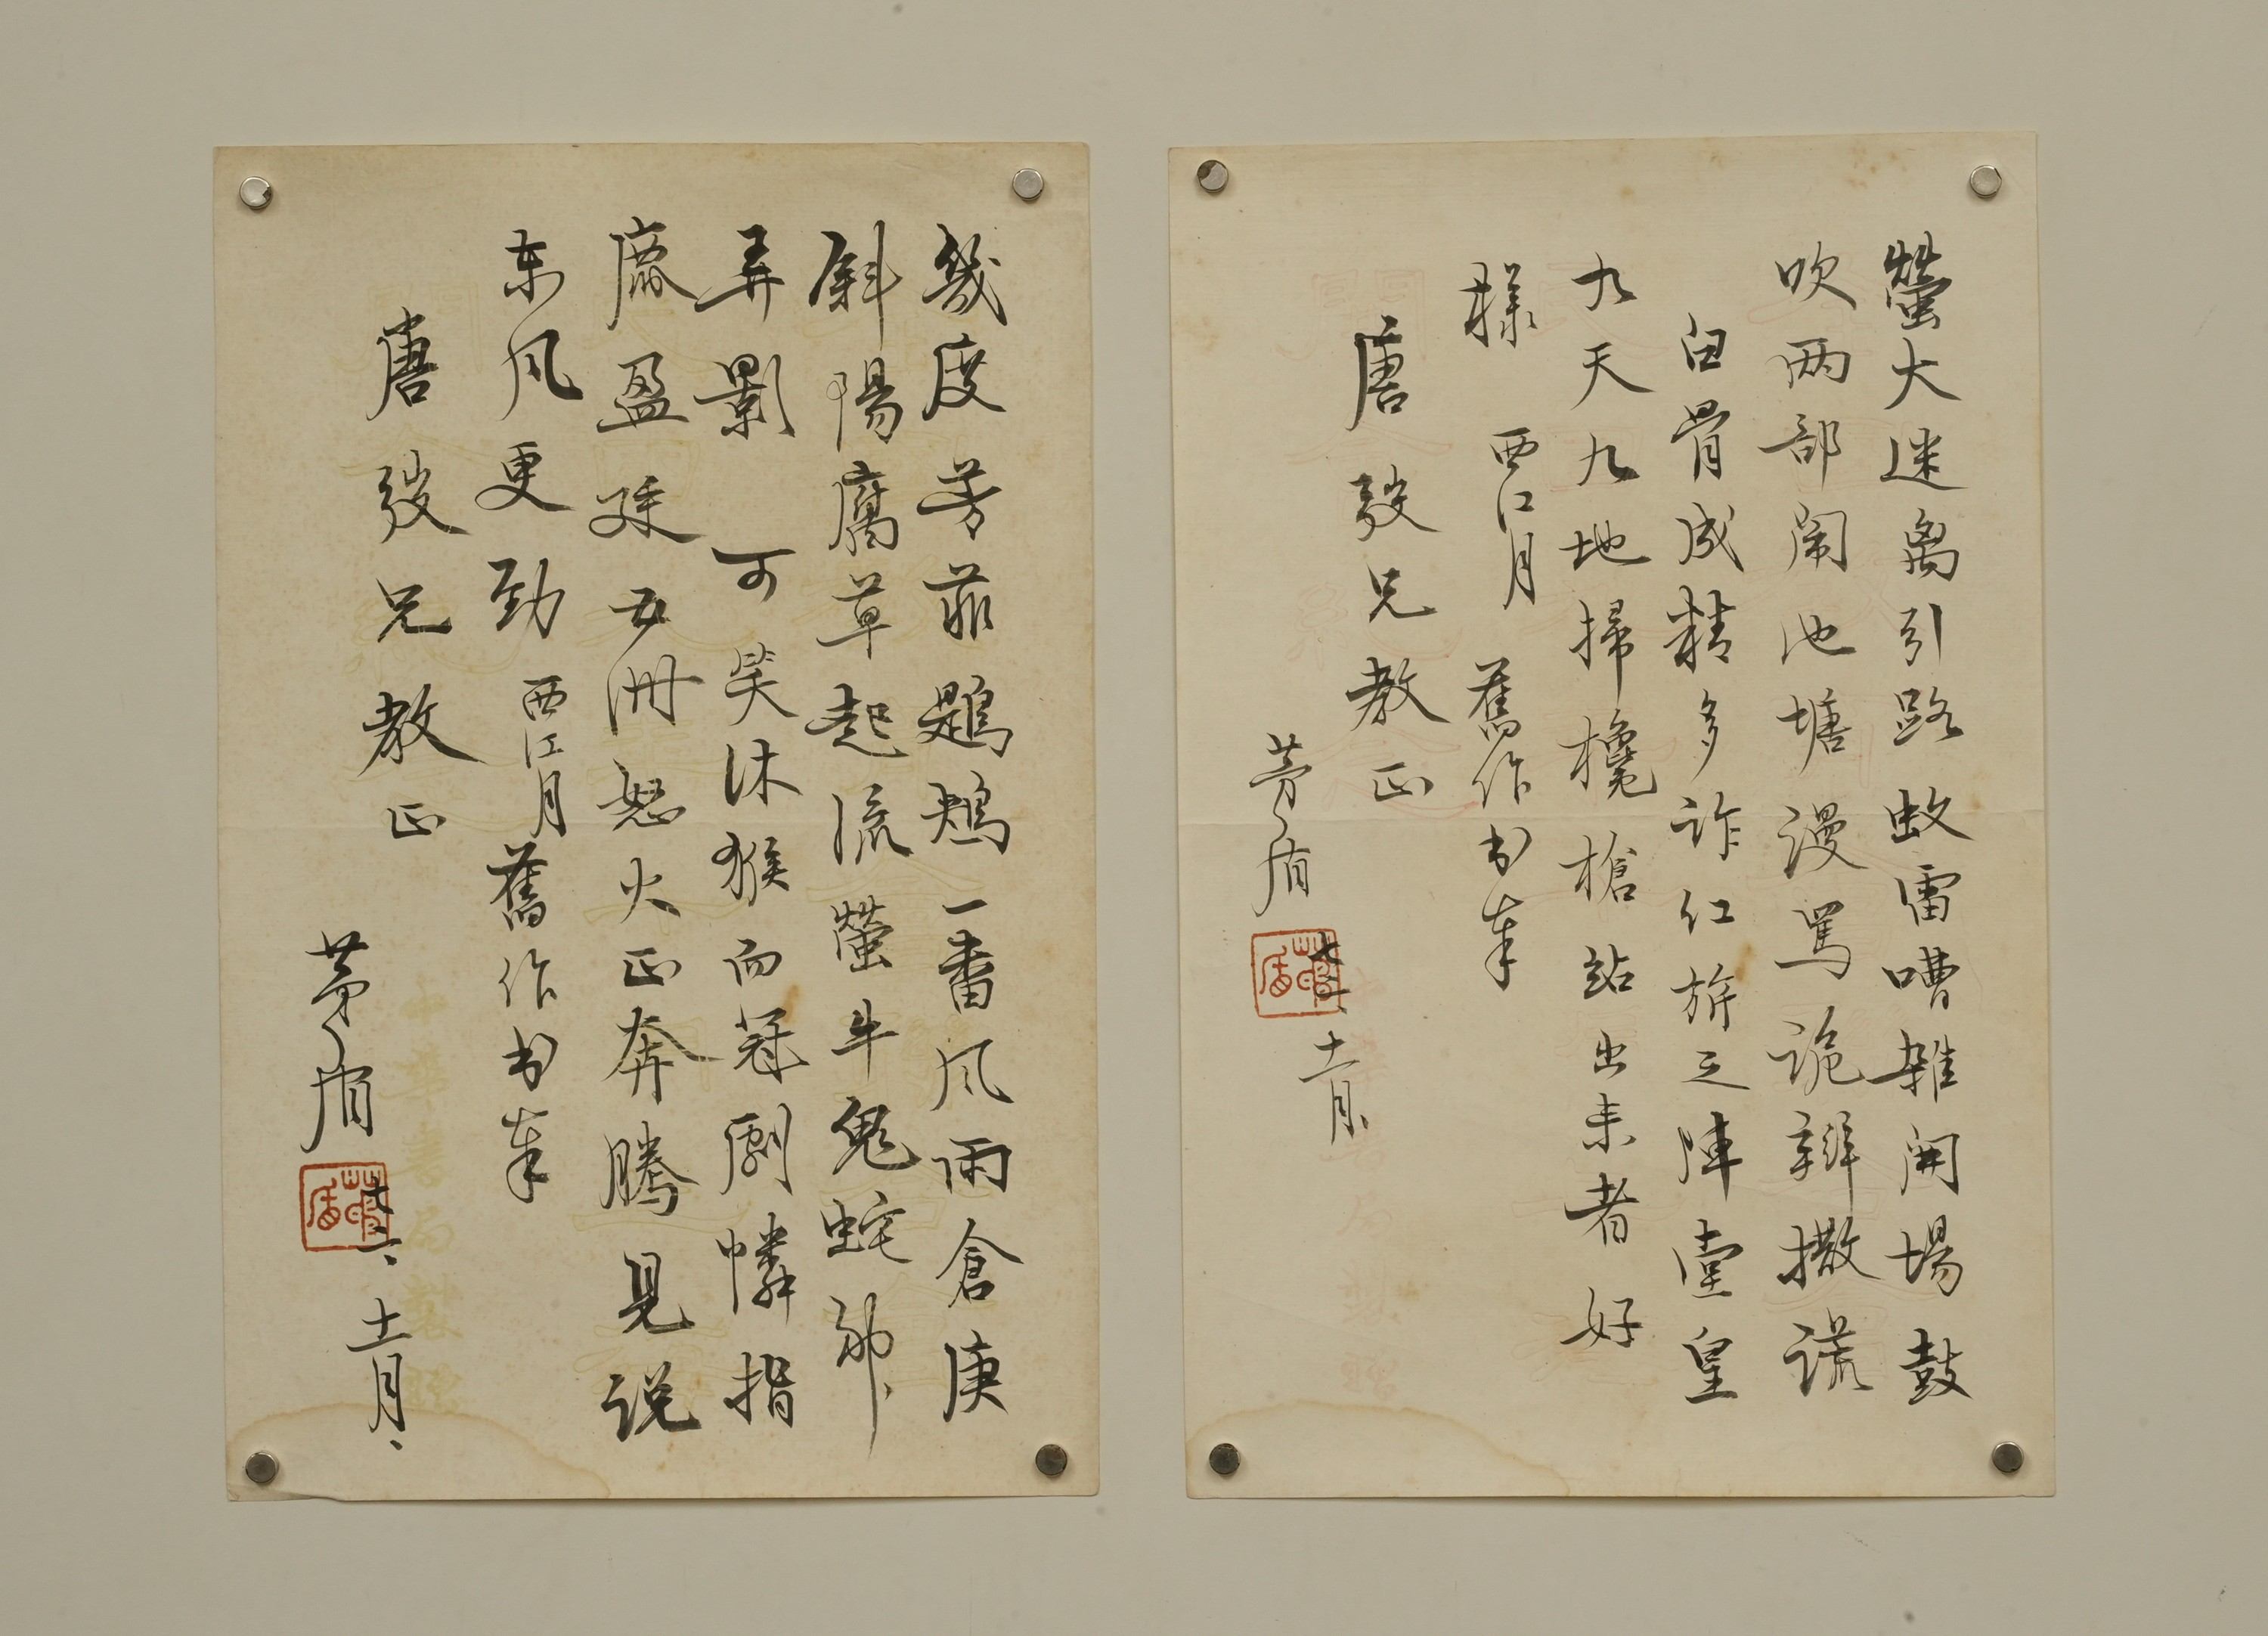 螢火迷离引路蚊雷嘈雜開場鼓
吹两部闹池塘漫罵诡辯撒谎
白骨成精多诈红旂之陣堂皇
九天九地掃欃槍站出来者好
樣 西江月 舊作书奉
唐弢兄教正
茅盾
十一月
幾度芳菲鶗鴂一番风雨倉庚
斜陽腐草起流螢牛鬼蛇神
弄影 可笑沐猴而冠劇憐指
鹿盈廷五洲怒火正奔騰見说
东风更劲 西江月 舊作书奉
唐弢兄教正
茅盾
十一月